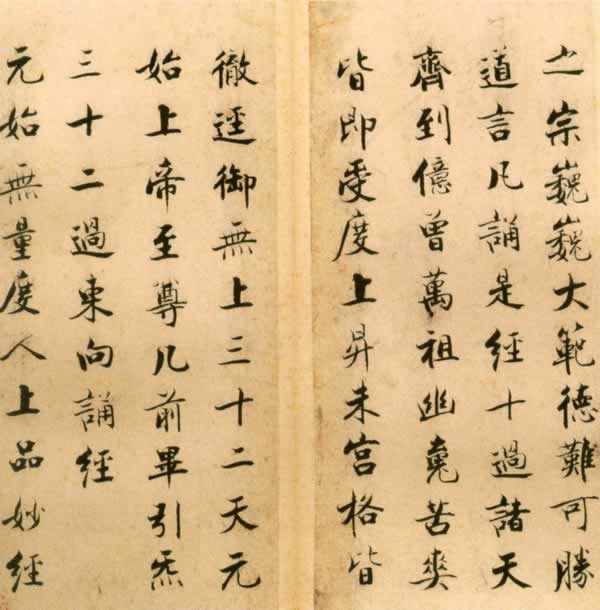 之宗巍巍大範德難可勝
道言凡誦是經十過諸天
齊到億曾萬祖幽䰟苦爽
皆即受度上昇朱宫格皆
徹逕御無上三十二天元
始上帝至尊几前畢引炁
三十二過東向誦經
元始無量度人上品妙經